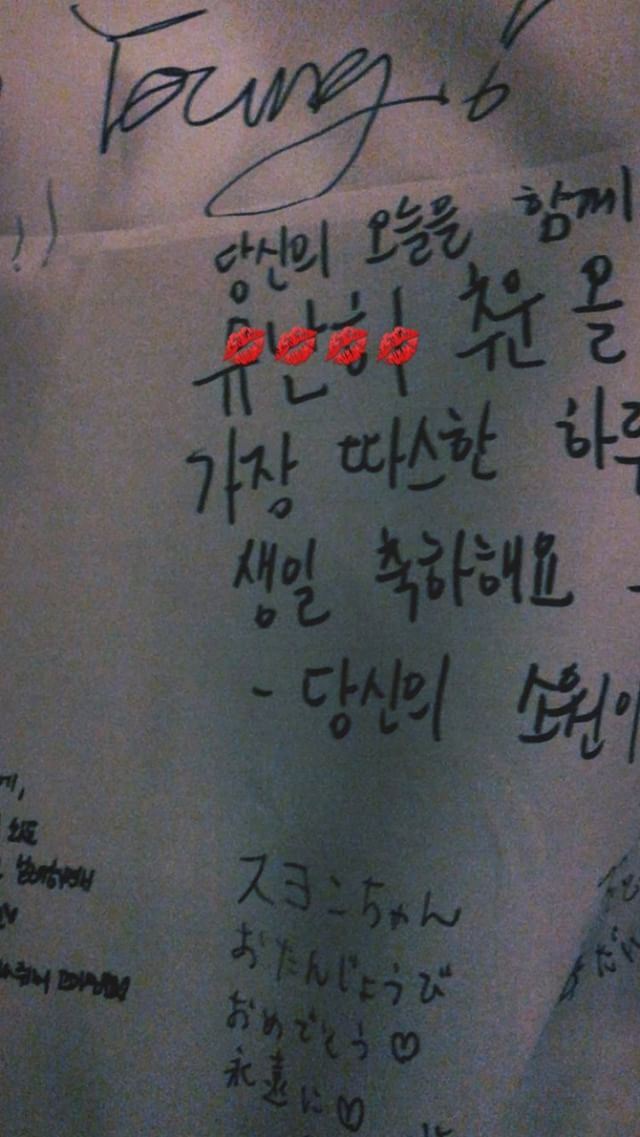 Young!
!!
당신의 오늘을 함께
유난히 추운 올
가장 따스한 하루
생일 축하해요
- 당신의 소원이
スヨンちゃん
おたんじょうび
おめでとう♡
永遠に♡